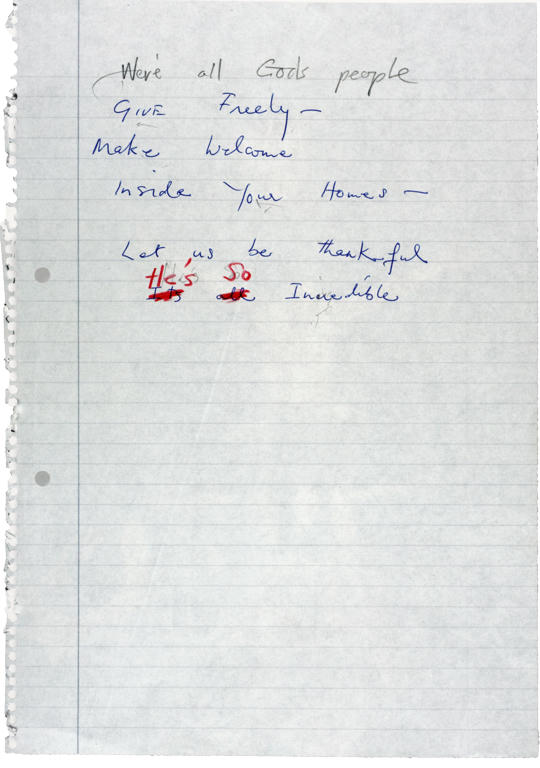 We're all Gods people
GIVE Freely —
Make Welcome
Inside Your Homes —
Let us be thankful
He's So
Its all Incredible